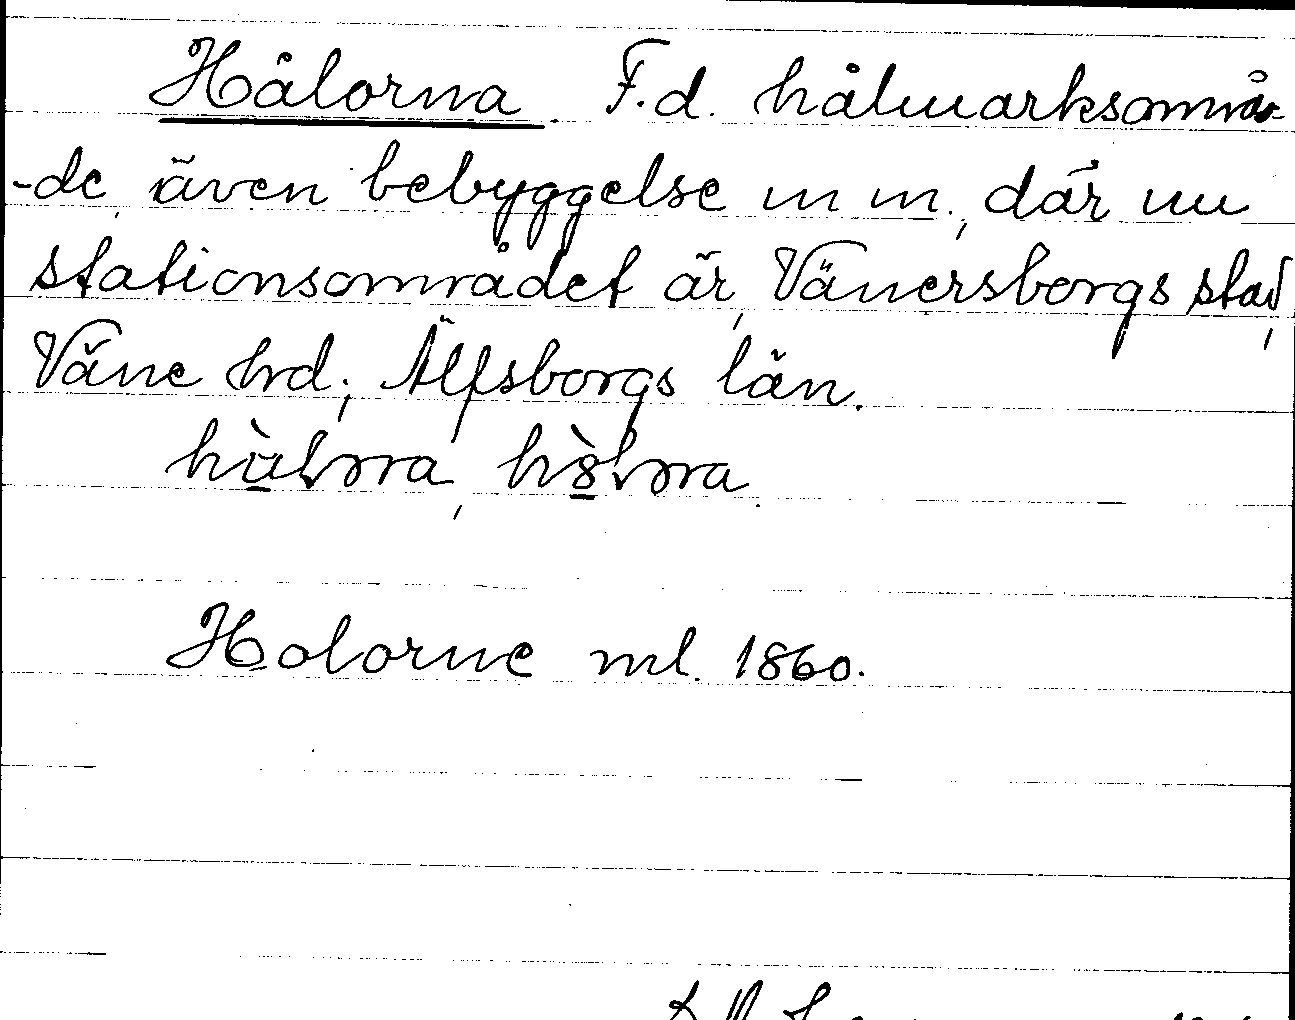 Hålorna. F.d. hålmarksområ-
-de, även bebyggelse m m, där nu
stationsområdet är, Vänersborgs stad,
Väne hrd; Älfsborgs län.
Holorne ml. 1860.